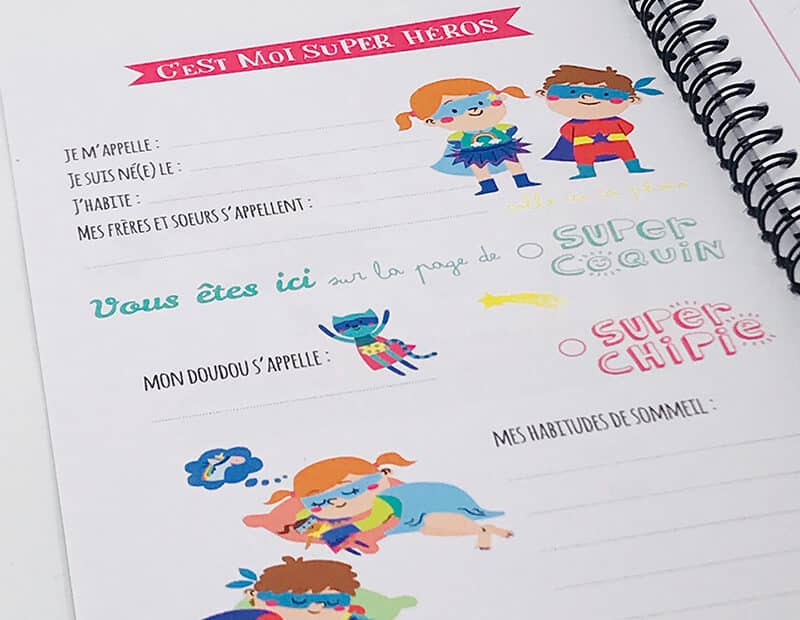 C'EST MOI SUPER HÉROS
JE M'APPELLE :
JE SUIS NÉ(E) LE :
J'HABITE :
MES FRÈRES ET SOEURS S'APPELLENT :
Vous êtes ici sur la page de
SUPER
COQUIN
SUPER
CHIPIE
MON DOUDOU S'APPELLE :
MES HABITUDES DE SOMMEIL :